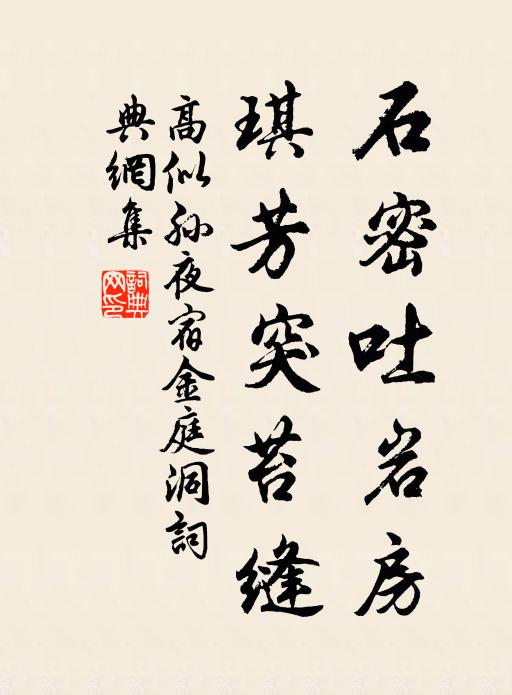 石密吐岩房
琪芳突苔缝
高似孙夜宿金庭洞詞
典網集
詞典網印